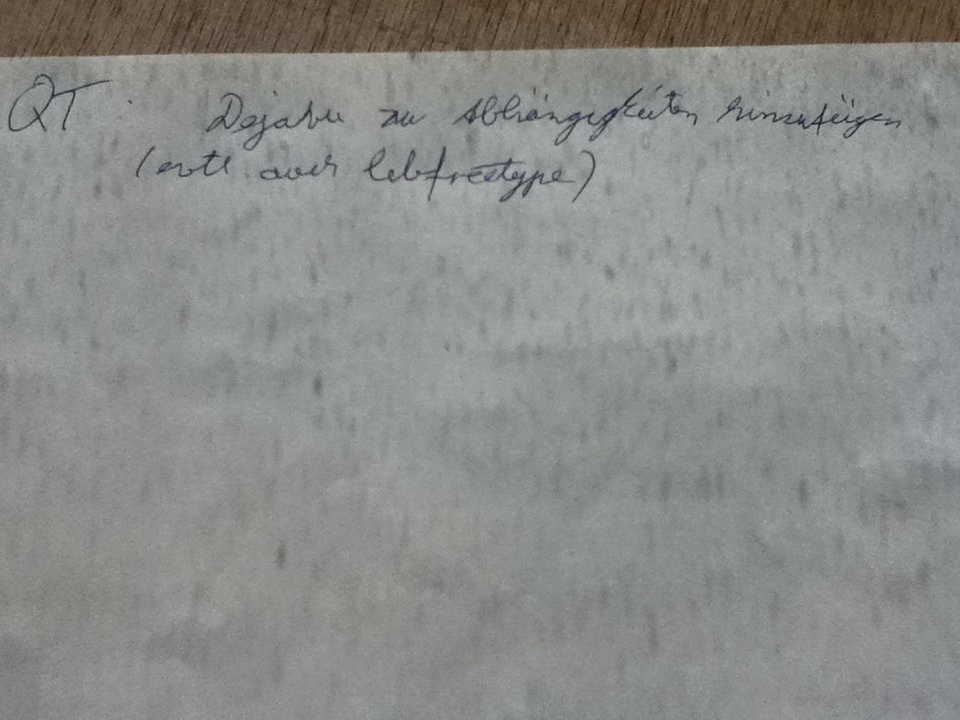 QT: Dejavu zu Abhängigkeiten hinzufügen
(evtl auch libfreetype)